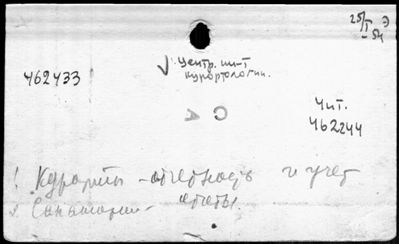 25/I-54 Э
✓ Центр. ин-т
курортологии.
462433
Чит.
462244
СА
1. Курорты - отчетность и учет
2. Санатории - отчеты